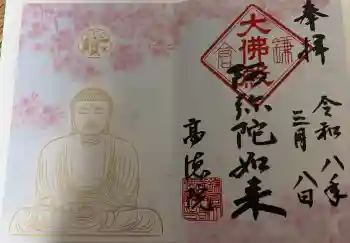 奉拝
令和八年
三月八日
大佛殿
鎌倉
阿弥陀如来
高徳院